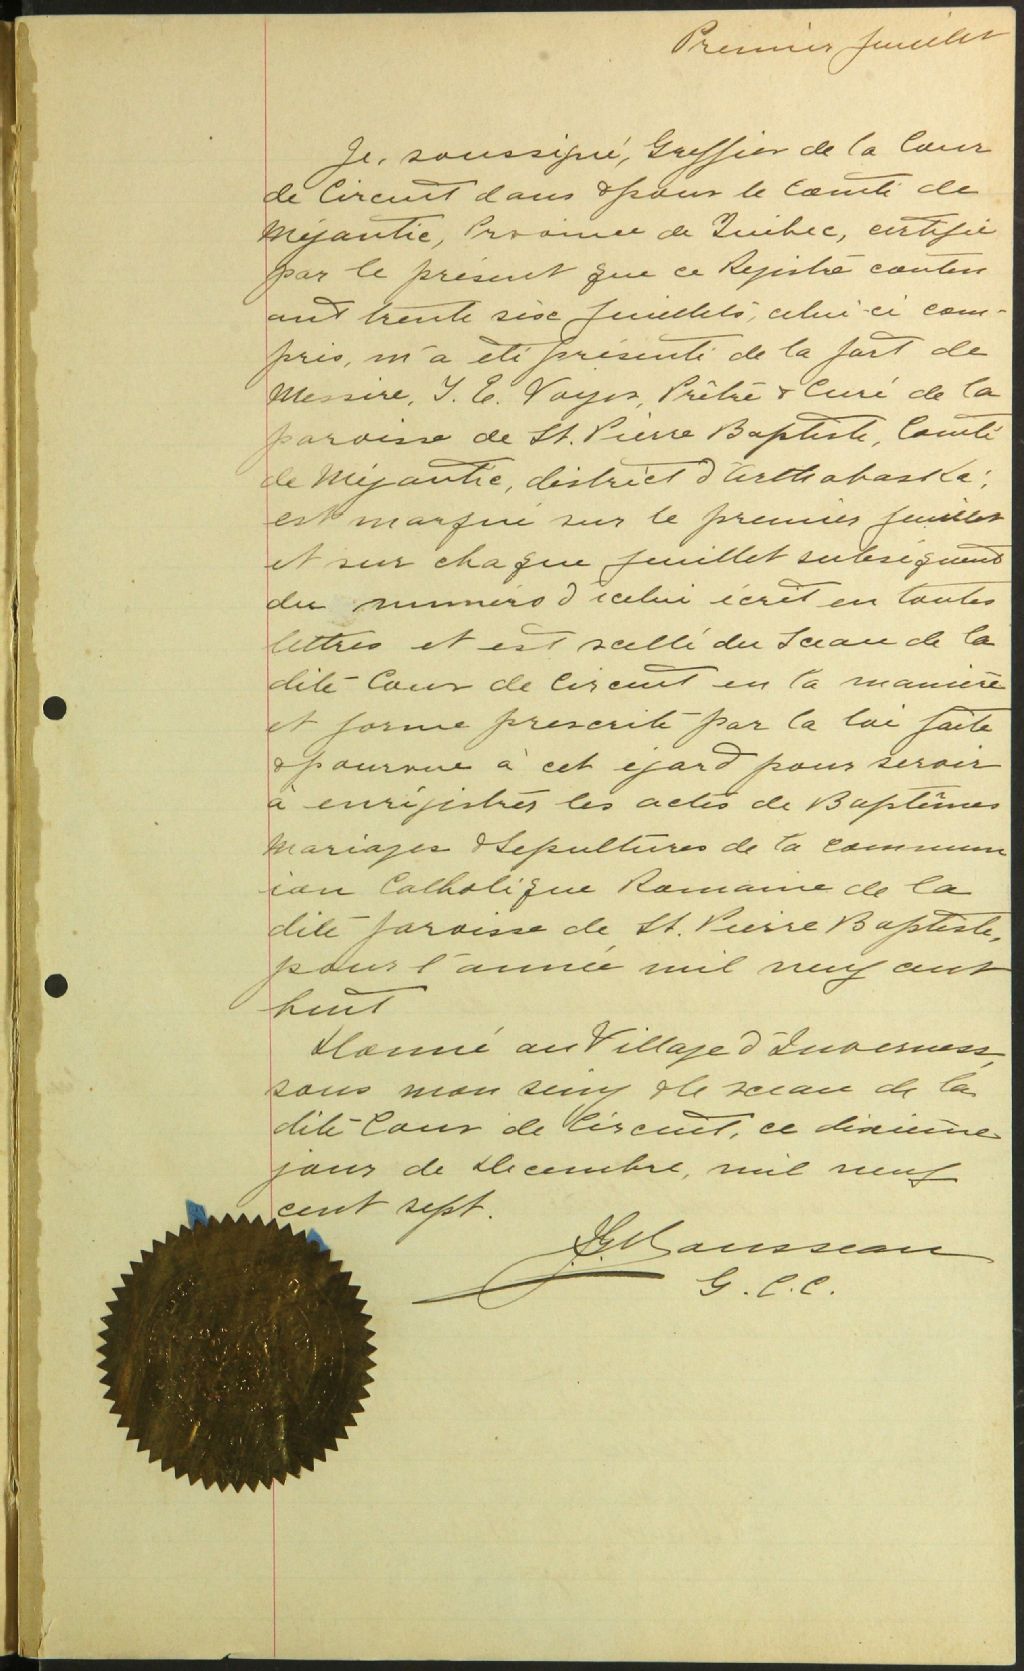 Premier feuillet
Je, soussigné, Greffier de la Cour
de Circuit dans & pour le Comté de
Mégantic, Province de Québec, certifie
par le présent que ce Registre conten
ant trente six feuillets, celui-ci com-
pris, m'a été présenté de la part de
Messire, J. E. Voyer, Prêtre & Curé de la
paroisse de St. Pierre Baptiste, Comté
de Mégantic, district d'Arthabaska;
est marqué sur le premier feuillet
et sur chaque feuillet subséquent
du numéro d'icelui écrit en toutes
lettres et est scellé du Sceau de la
dite Cour de Circuit en la manière
et forme prescrite par la loi faite
& pourvue à cet égard pour servir
à enrégistrer les actes de Baptêmes
Mariages & Sépultures de la commun
ion Catholique Romaine de la
dite paroisse de St. Pierre Baptiste,
pour l'année mil neuf cent
huit
Donné au Village d'Inverness,
sous mon seing & le sceau de la
dite Cour de Circuit, ce dixième
jour de Décembre, mil neuf
cent sept.
Rousseau
G. C. C.